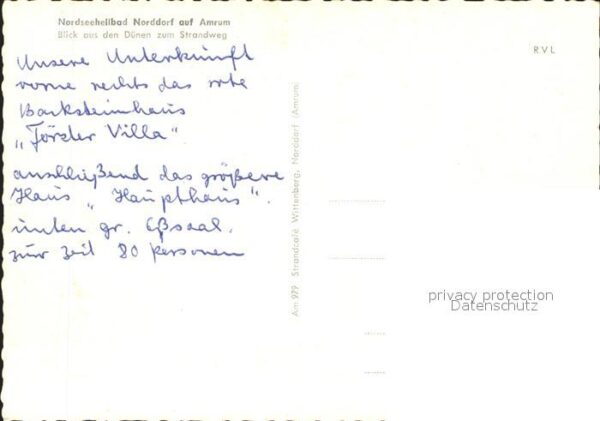 Nordseeheilbad Norddorf auf Amrum
Blick aus den Dünen zum Strandweg
Unsere Unterkünft
vorne rechts das rote
Backsteinhaus
„Förster Villa"
anschließend das größere
Haus „Haupthaus".
unten gr. Eßsaal.
zur Zeit 80 Personen
Am 979 Strandcafé Wittenberg, Norddorf (Amrum)
RVL
privacy protection
Datenschutz